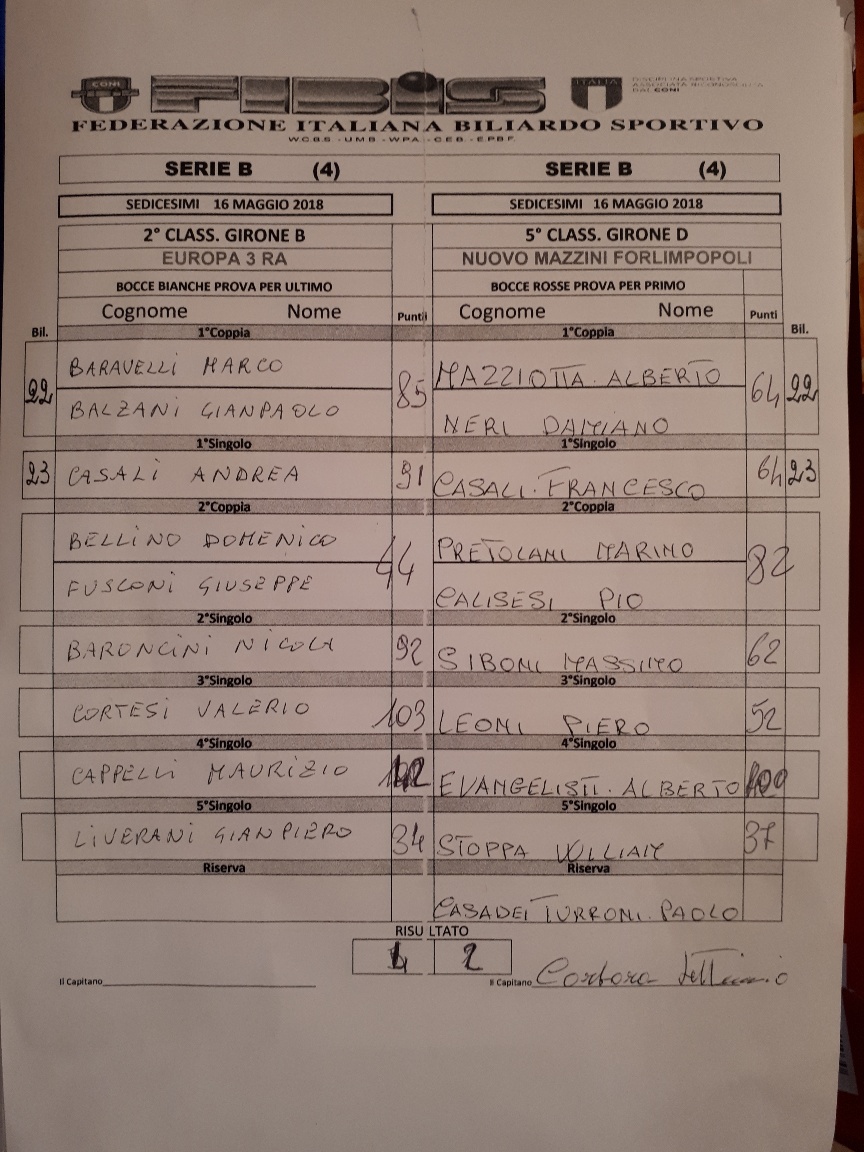 CONI FIBiS ITALIA DISCIPLINA SPORTIVA
ASSOCIATA RICONOSCIUTA
DAL CONI
FEDERAZIONE ITALIANA BILIARDO SPORTIVO
W.C.B.S. - U.M.B. - W.P.A. - C.E.B. - E.P.B.F.
SERIE B (4) SERIE B (4)
SEDICESIMI 16 MAGGIO 2018 SEDICESIMI 16 MAGGIO 2018
2° CLASS. GIRONE B 5° CLASS. GIRONE D
EUROPA 3 RA NUOVO MAZZINI FORLIMPOPOLI
BOCCE BIANCHE PROVA PER ULTIMO BOCCE ROSSE PROVA PER PRIMO
Cognome Nome Punti Cognome Nome Punti
Bil. 1°Coppia 1°Coppia Bil.
BARAVELLI MARCO MAZZIOTTA. ALBERTO
22 85 64 22
BALZANI GIANPAOLO NERI DAMIANO
1°Singolo 1°Singolo
23 CASALI ANDREA 91 CASALI. FRANCESCO 64 23
2°Coppia 2°Coppia
BELLINO DOMENICO PRETOLANI MARINO
44 82
FUSCONI GIUSEPPE CALISESI PIO
2°Singolo 2°Singolo
BARONCINI NICOLA 92 SIBONI MASSIMO 62
3°Singolo 3°Singolo
CORTESI VALERIO 103 LEONI PIERO 52
4°Singolo 4°Singolo
CAPPELLI MAURIZIO EVANGELISTI. ALBERTO
5°Singolo 5°Singolo
LIVERANI GIANPIERO 34 STOPPA WILLIAM 37
Riserva Riserva
CASADEI TURRONI. PAOLO
RISULTATO
2
Il Capitano Il Capitano